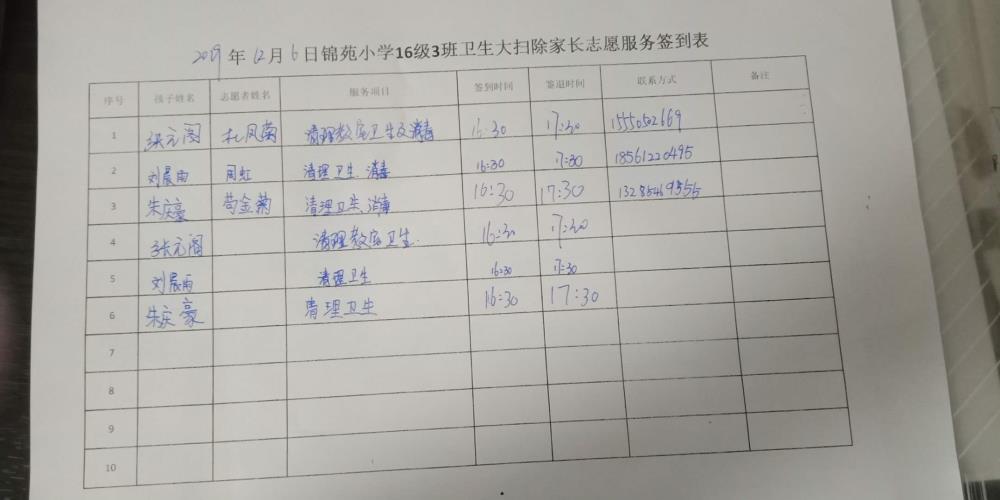 2019年12月6日锦苑小学16级3班卫生大扫除家长志愿服务签到表
序号 孩子姓名 志愿者姓名 服务项目 签到时间 签退时间 联系方式 备注
1 张元阁 札风菊 清理教室卫生及消毒 16:30 17:30 15550502669
2 刘晨雨 周虹 清理卫生、消毒 16:30 17:30 18561220495
3 朱庆豪 苟金菊 清理卫生、消毒 16:30 17:30
4 张元阁 清理教室卫生. 16:30 17:30
5 刘晨雨 清理卫生 16:30 17:30
6 朱庆豪 清理卫生 16:30 17:30
7
8
9
10